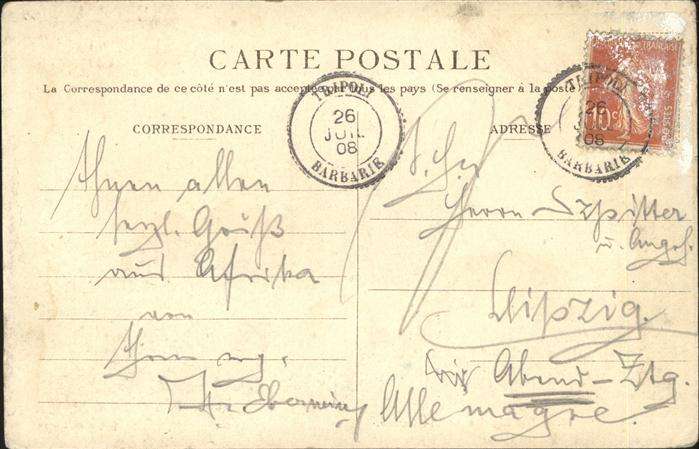 CARTE POSTALE
La Correspondance de ce côté n'est pas acceptée par tous les pays (Se renseigner à la poste)
CORRESPONDANCE
ADRESSE
TRIPOLI
26
JUIL
08
BARBARIE
TRIPOLI
26
08
BARBARIE
10c
Ihnen allen
herzl. Gruß
aus Afrika
von
Ihrem
S. Hr.
Herrn Szpitter
u. Angeh.
Leipzig.
Abend-Ztg.
Allemagne